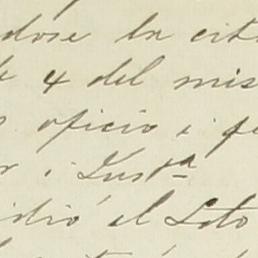 dose la cit
4 del mis
oficio i fe
r i Lusta
idió el Soto